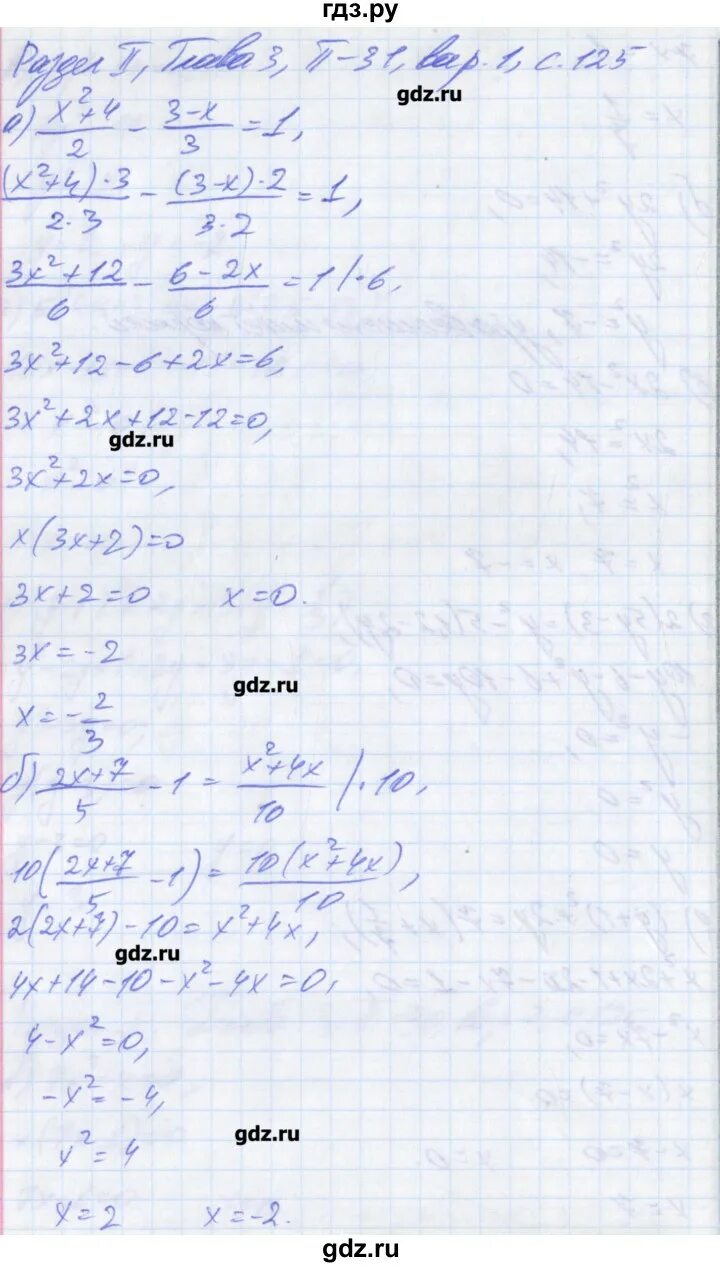 гдз.ру
Раздел II, Глава 3, П-31, вар. 1, с. 125
gdz.ru
а) (x²+4)/2 - (3-x)/3 = 1,
((x²+4)·3)/(2·3) - ((3-x)·2)/(3·2) = 1,
(3x²+12)/6 - (6-2x)/6 = 1 |·6,
3x²+12-6+2x=6,
3x²+2x+12-12=0,
gdz.ru
3x²+2x=0,
x(3x+2)=0
3x+2=0 x=0.
3x=-2
gdz.ru
x=-2/3
б) (2x+7)/5 - 1 = (x²+4x)/10 |·10,
10((2x+7)/5 - 1) = (10(x²+4x))/10,
2(2x+7)-10=x²+4x,
gdz.ru
4x+14-10-x²-4x=0,
4-x²=0,
-x²=-4,
gdz.ru
x²=4
x=2 x=-2.
gdz.ru